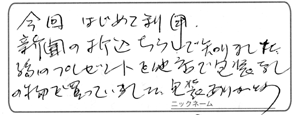 今回はじめて利用.
新聞の折込ちらしで知りました
のプレゼントを他店で包装なし
の物を買っていました 包装ありがとう
ニックネーム